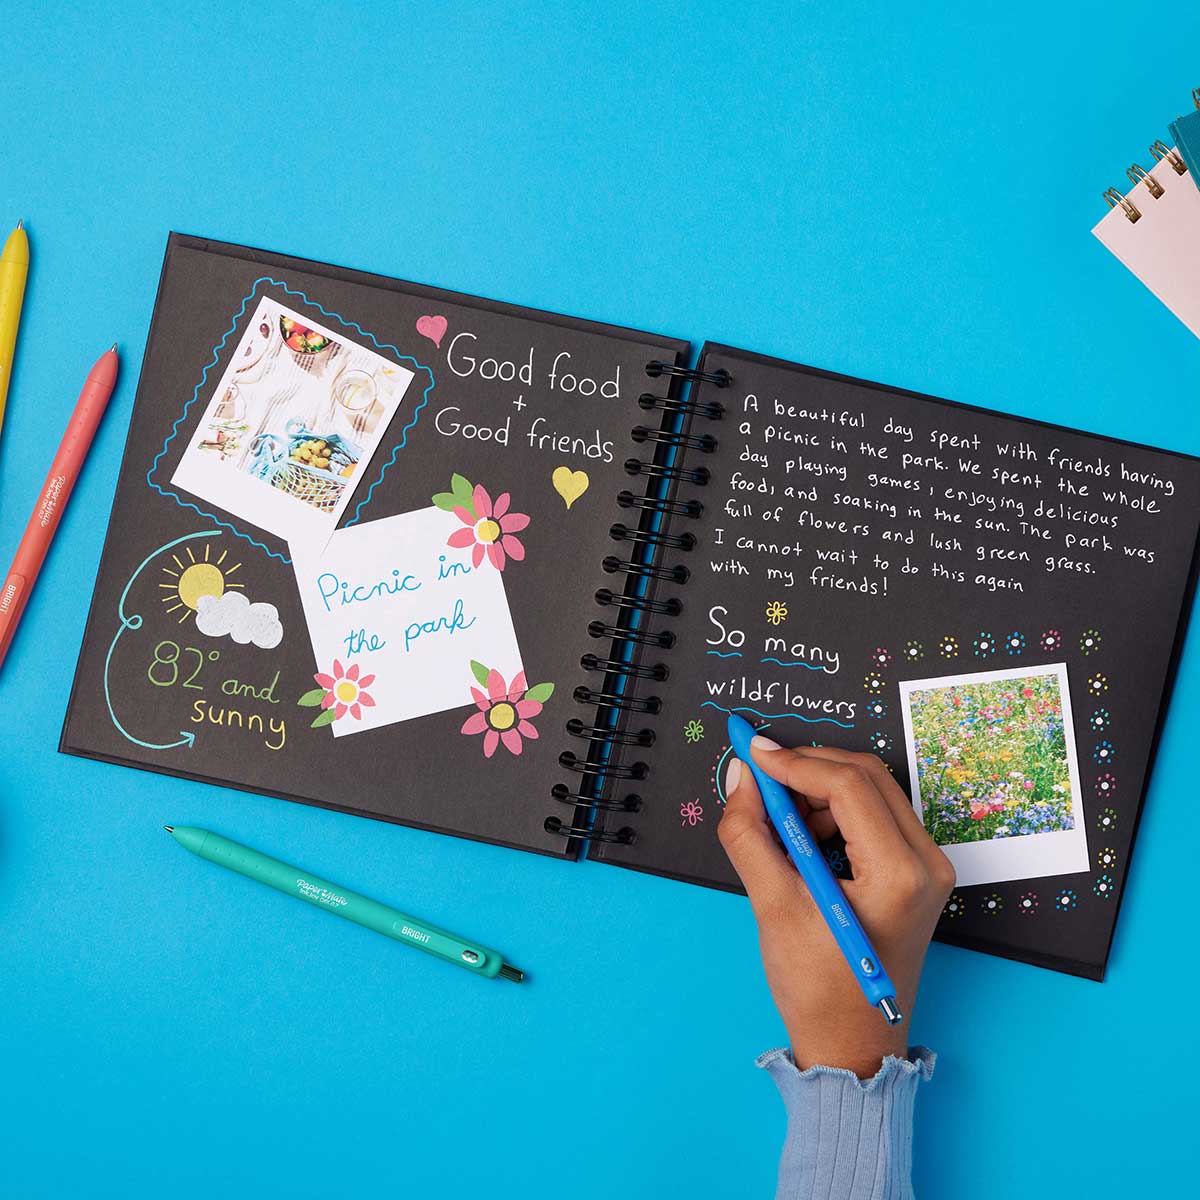 Good food
+
Good friends
Picnic in
the park
82° and
sunny
A beautiful day spent with friends having
a picnic in the park. We spent the whole
day playing games, enjoying delicious
food, and soaking in the sun. The park was
full of flowers and lush green grass.
I cannot wait to do this again
with my friends!
So many
wildflowers
Paper Mate
InkJoy Gel 0.7
BRIGHT
Paper Mate
InkJoy Gel 0.7
BRIGHT
Paper Mate
InkJoy Gel 0.7
BRIGHT